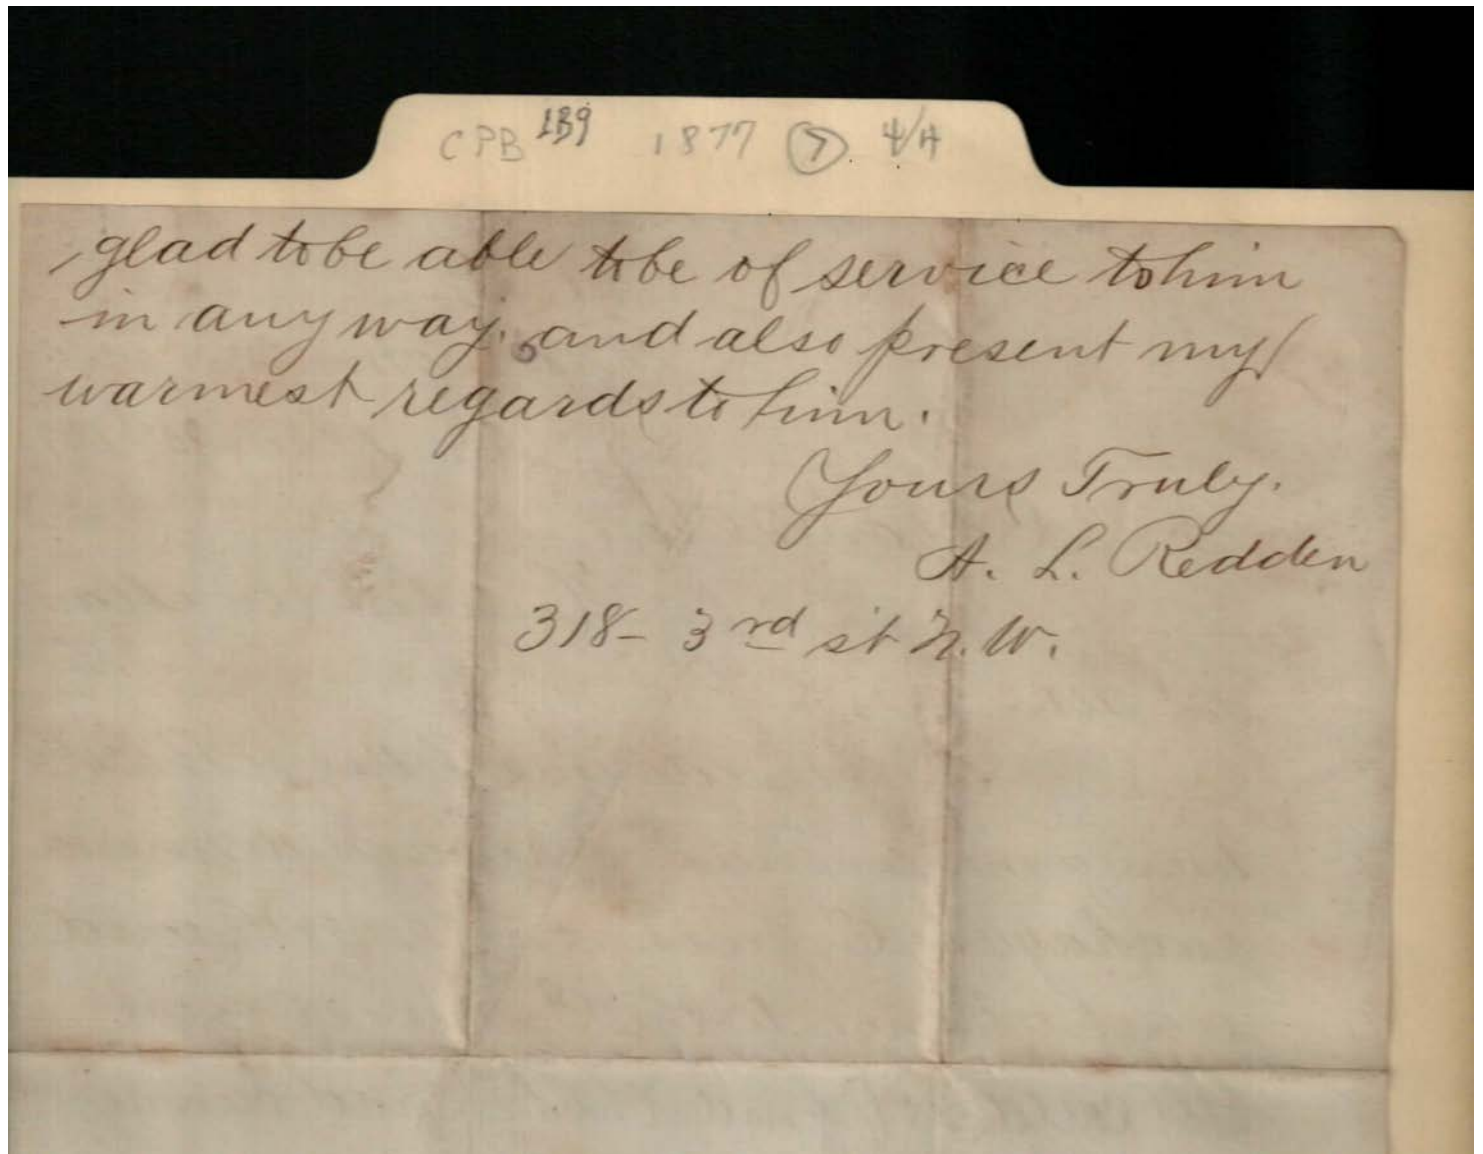 CPB 1B9 1877 7. 4/4
glad to be able to be of service to him
in any way. and also present my
warmest regards to him.
Yours Truly.
A. L. Redden
318- 3rd st N.W.